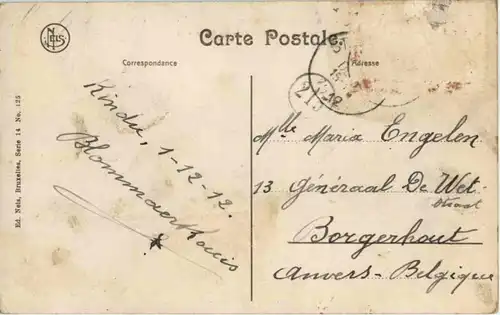 NELS
Carte Postale.
Correspondance
Adresse
Ed. Nels, Bruxelles, Serie 14 No. 125
Kindu, 1-12-12.
Blommaert Louis
215
Mlle Maria Engelen
13 Généraal De Wet
straat
Borgerhout
Anvers - Belgique